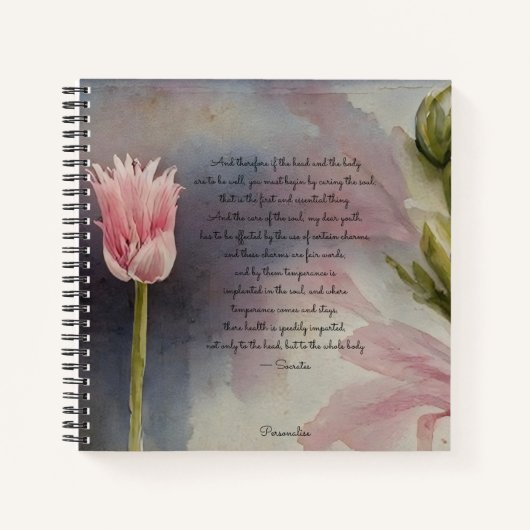 And therefore if the head and the body
are to be well, you must begin by curing the soul;
that is the first and essential thing.
And the care of the soul, my dear youth,
has to be effected by the use of certain charms,
and these charms are fair words;
and by them temperance is
implanted in the soul, and where
temperance comes and stays,
there health is speedily imparted,
not only to the head, but to the whole body
— Socrates
Personalise